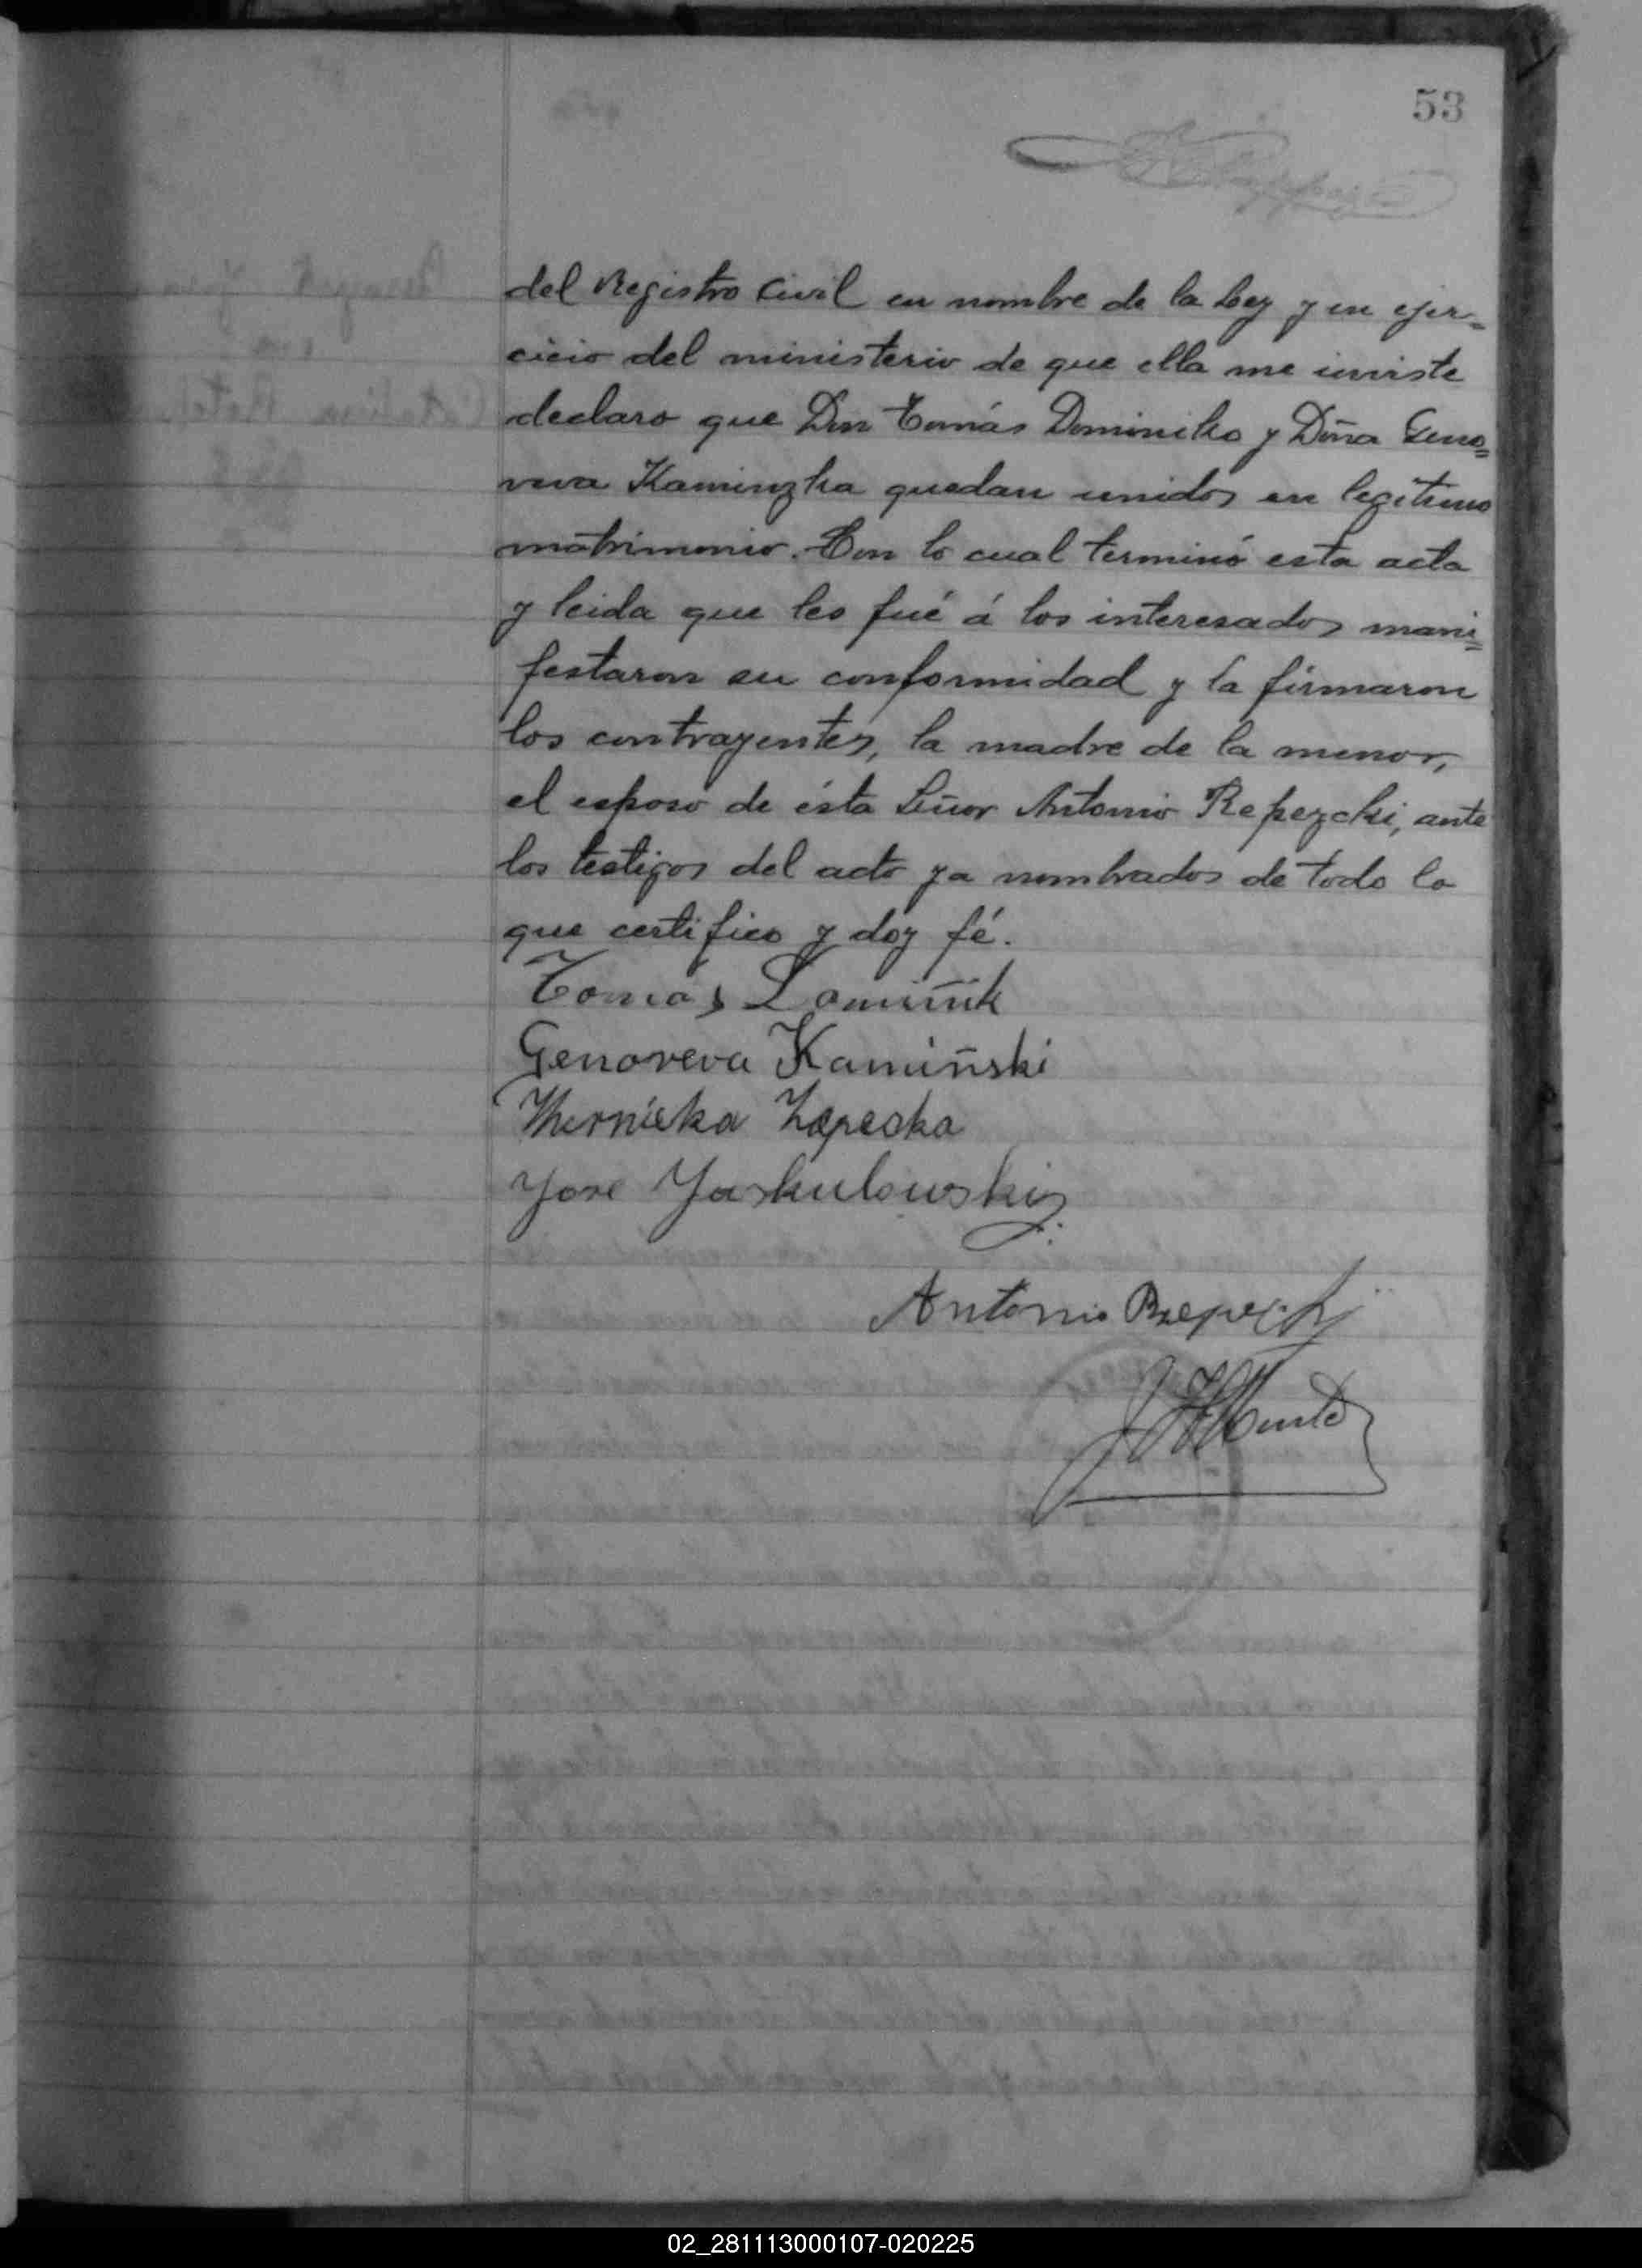 53
del Registro Civil en nombre de la Ley y en ejer=
cicio del ministerio de que ella me inviste
declaro que Don Tomás Dominiko y Doña Geno=
veva Kaminzka quedan unidos en legitimo
matrimonio. Con lo cual terminó esta acta
y leida que les fué á los interesados mani=
festaron su conformidad y la firmaron
los contrayentes, la madre de la menor,
el esposo de ésta Señor Antonio Repezcki, ante
los testigos del acto ya nombrados de todo lo
que certifico y doy fé.
Tomás Domiñik
Genoveva Kamiñski
Yose Yaskulowski
Antonio
02_281113000107-020225